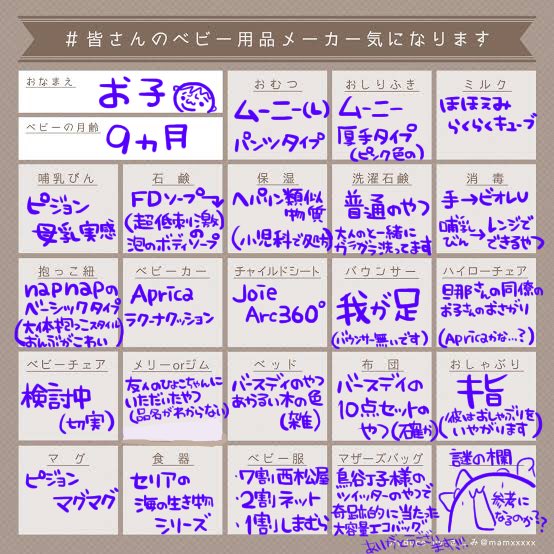 #皆さんのベビー用品メーカー気になります
おなまえ
お子
ベビーの月齢
9ヵ月
おむつ
ムーニー(L)
パンツタイプ
おしりふき
ムーニー
厚手タイプ
(ピンク色の)
ミルク
ほほえみ
らくらくキューブ
哺乳びん
ピジョン
母乳実感
石鹸
FDソープ
(超低刺激)の
泡のボディソープ
保湿
ヘパリン類似
物質
(小児科で処方)
洗濯石鹸
普通のやつ
大人のと一緒に
ガラガラ洗ってます
消毒
手→ビオレU
哺乳びん→レンジで
できるやつ
抱っこ紐
napnapの
ベーシックタイプ
(大体抱っこスタイル)
おんぶがこわい
ベビーカー
Aprica
ラクーナクッション
チャイルドシート
Joie
Arc360°
バウンサー
我が足
(バウンサー無いです)
ハイローチェア
旦那さんの同僚の
お子さんのおさがり
(Apricaかな…?)
ベビーチェア
検討中
(切実)
メリーorジム
友人のひよこちゃんに
いただいたやつ
(品名がわからない)
ベッド
バースデイのやつ
あかるい木の色
(雑)
布団
バースデイの
10点セットの
やつ(確か)
おしゃぶり
キ旨
(彼はおしゃぶりを
いやがります)
マグ
ピジョン
マグマグ
食器
セリアの
海の生き物
シリーズ
ベビー服
・7割西松屋
・2割ネット
・1割しまむら
マザーズバッグ
鳥谷丁子様の
ツイッターのやつで
奇跡的に当たった
大容量エコバッグ
ありがとうございます!!
謎の欄
参考に
なるのか??
@mamxxxxx